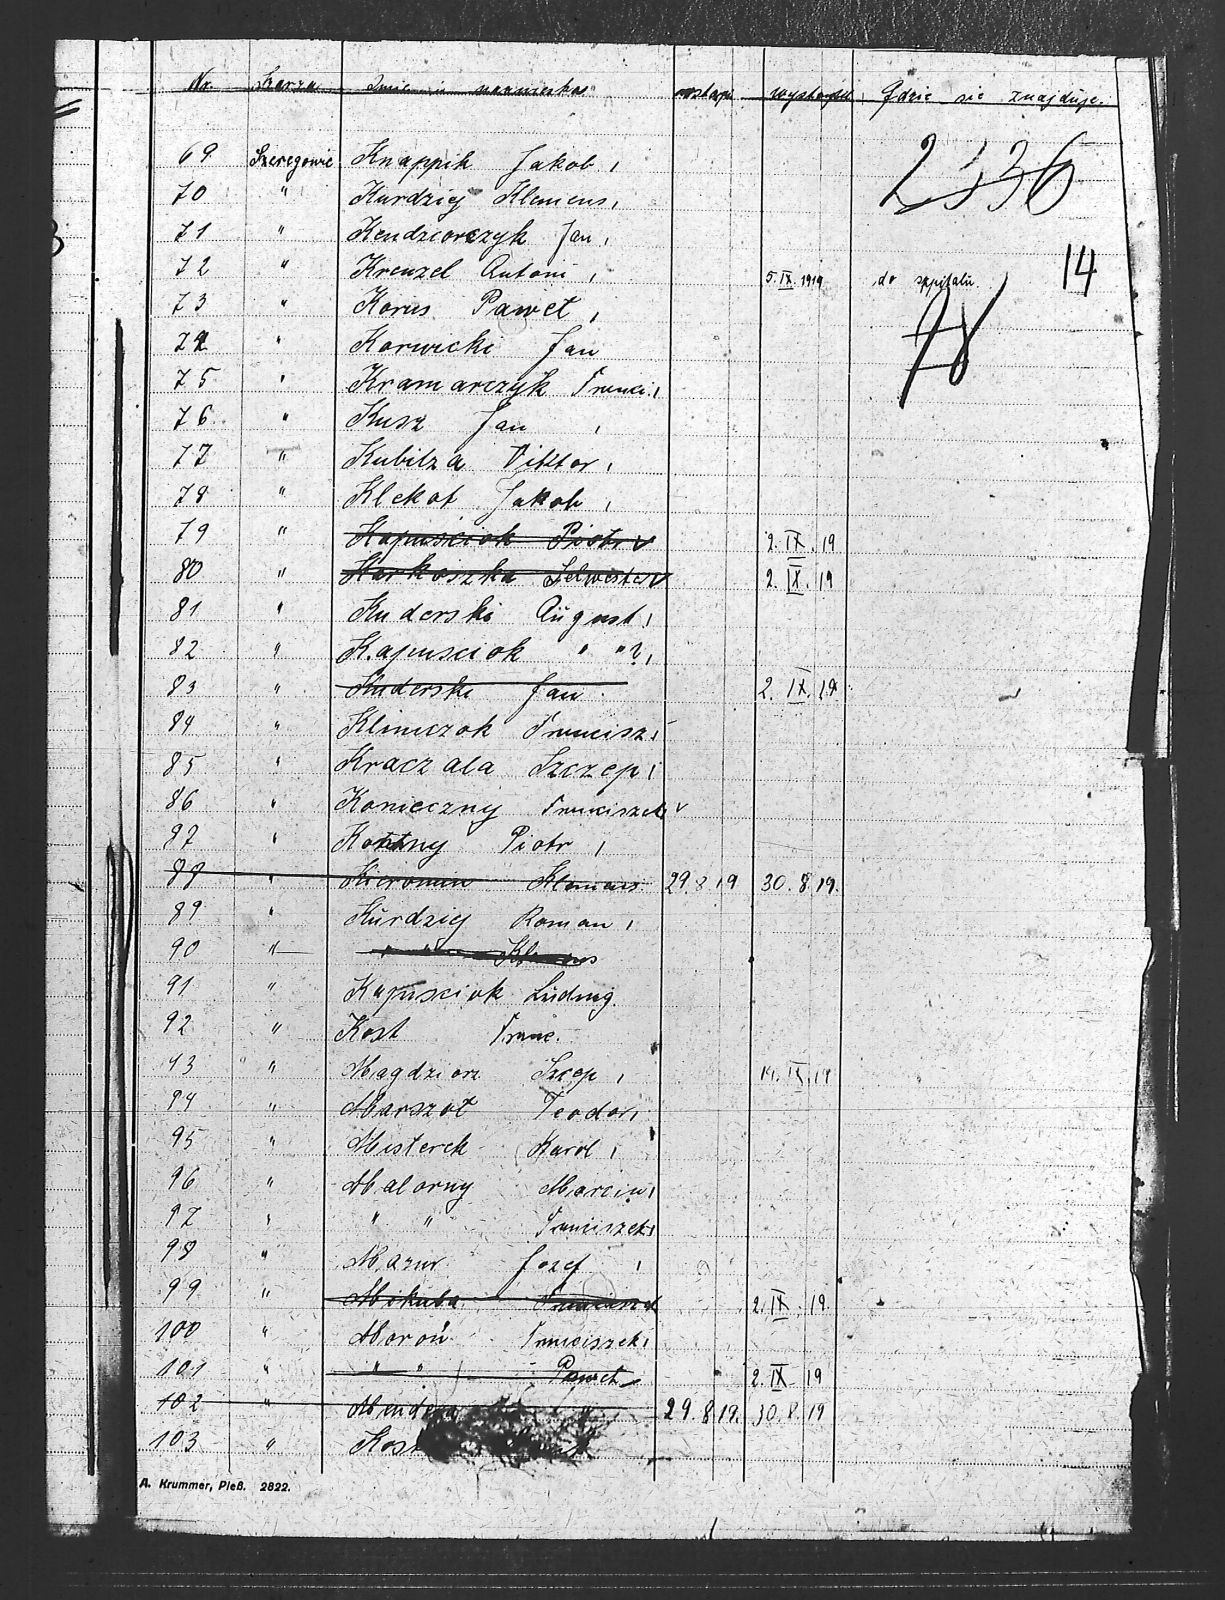 Nr. Szarza Imie i nazwisko wstąpił wystąpił Gdzie się znajduje.
2336
69 Szeregowiec Knappik Jakob,
70 " Kurdziej Klemens,
71 " Kendziorczyk Jan,
14
72 " Krenzel Antoni, 5. IX. 1919 do szpitalu.
73 " Korus Paweł,
78
74 " Korwicki Jan
75 " Kramarczyk Franci.,
76. " Kusz Jan,
77 " Kubitza Viktor,
78 " Klekot Jakob,
79 " Kapuściok Piotr 2. IX. 19
80 " Karkoszka Selwester 2. IX. 19
81 " Kuderski August,
82 " Kapusciok " "?,
83 " Kuderski Jan 2. IX. 19
84 " Klimczok Francisz,
85 " Kraczala Szczep,
86 " Konieczny Franciszek
87 " Kotny Piotr,
88 " Klemens 29. 8 19 30. 8. 19.
89 " Kurdziej Roman,
90 " " " Klemens
91 " Kapusciok Ludwig.
92 " Kost Franc.
93 " Magdziorz Szcep, 14. IX. 19
94 " Marszoł Teodor,
95 " Misterek Karol,
96 " Malorny Marcin,
97 " " " Franciszek,
98 " Mazur Jozef,
99 " Mikula 2. IX. 19.
100 " Moroń Franciszek,
101 " " " Paweł 2. IX 19
102 " " 29. 8 19. 30. 8. 19
103 "
A. Krummer, Pleß. 2822.